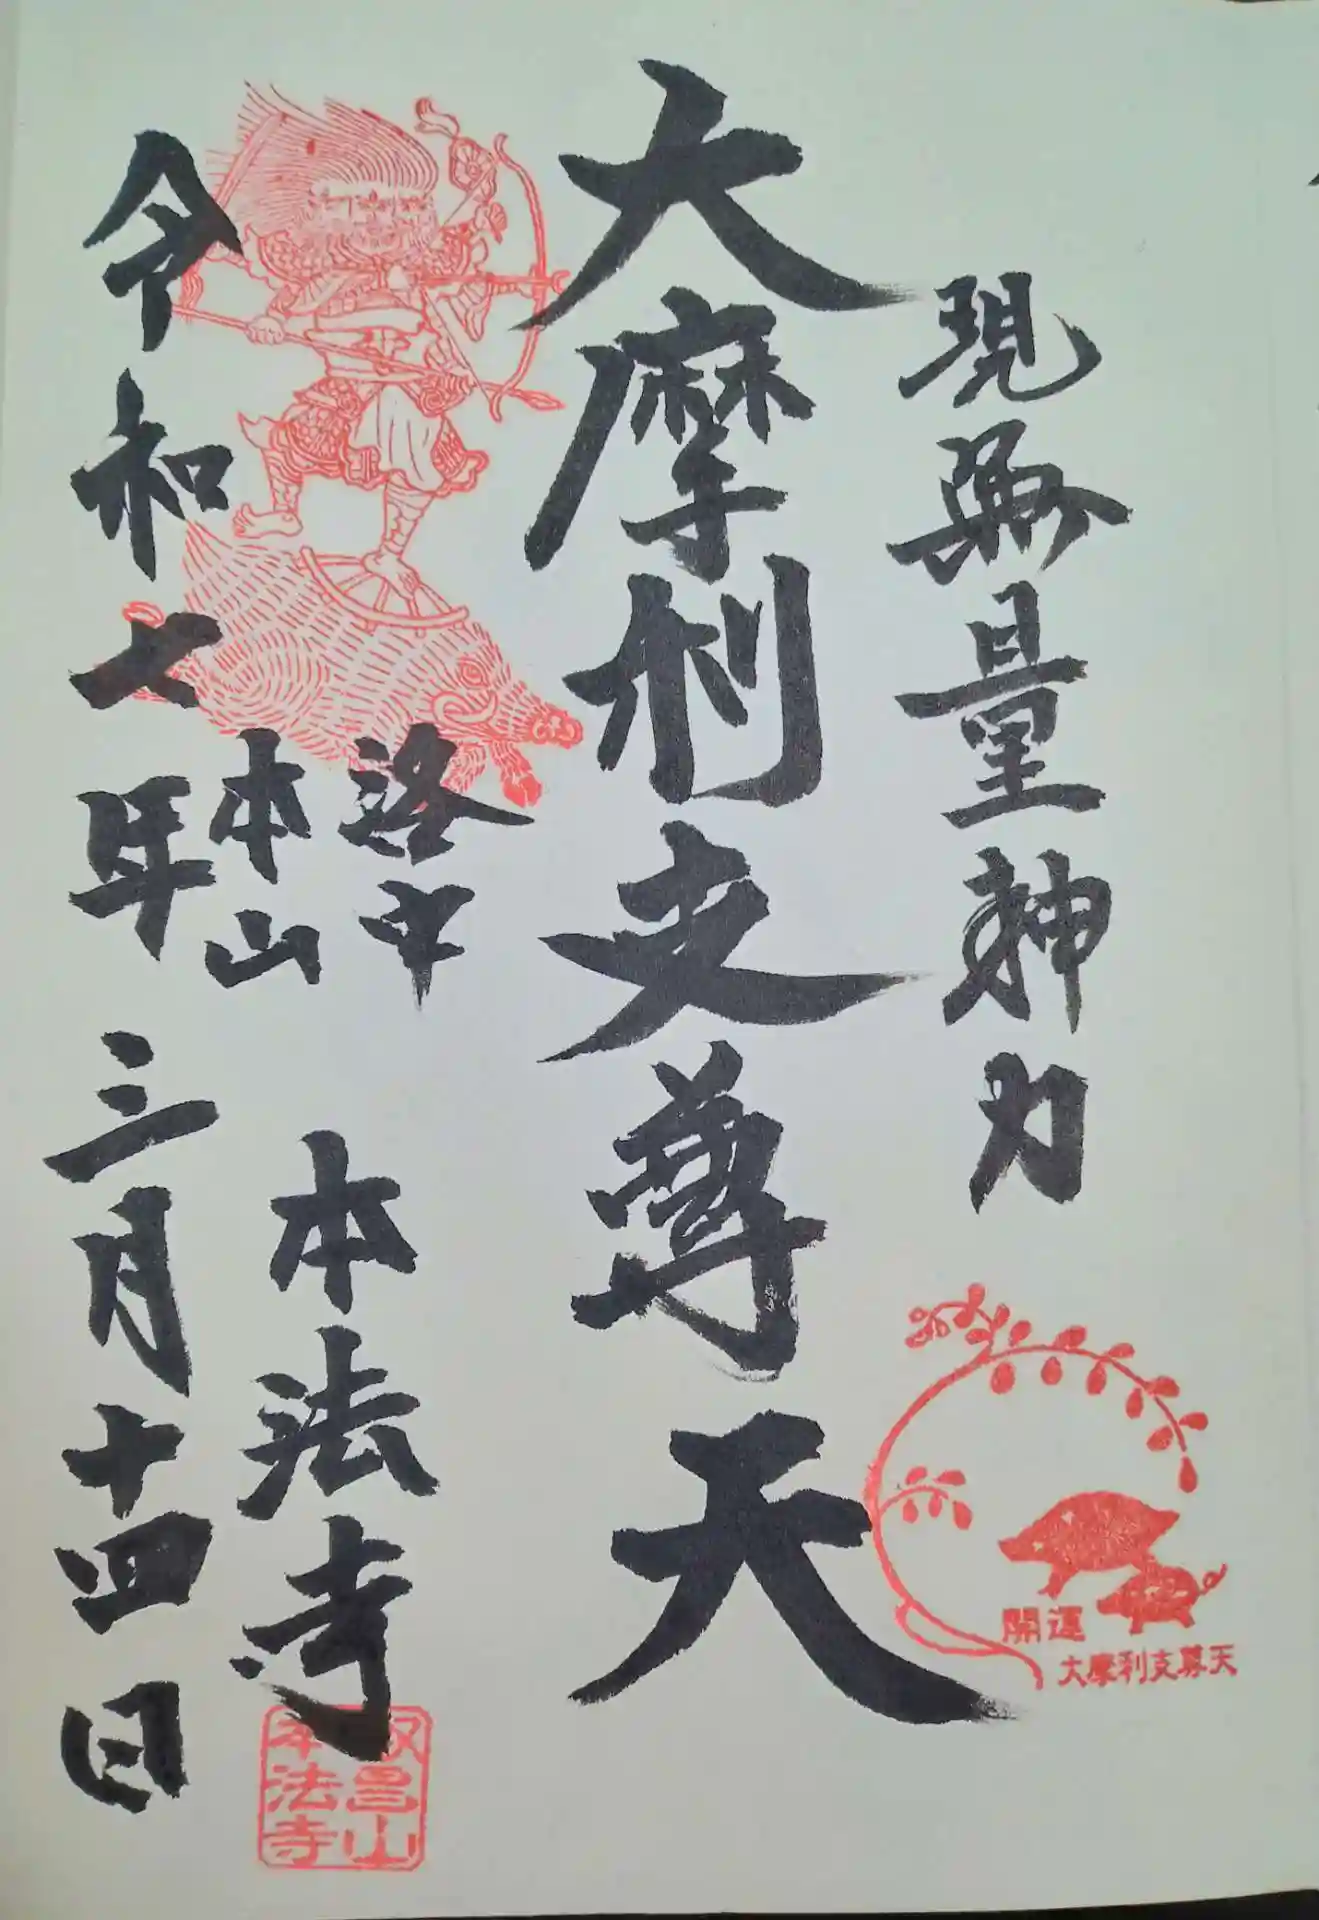 現無量神力
大摩利支尊天
洛中
本山
本法寺
令和七年三月十四日
開運
大摩利支尊天
叡昌山
本法寺